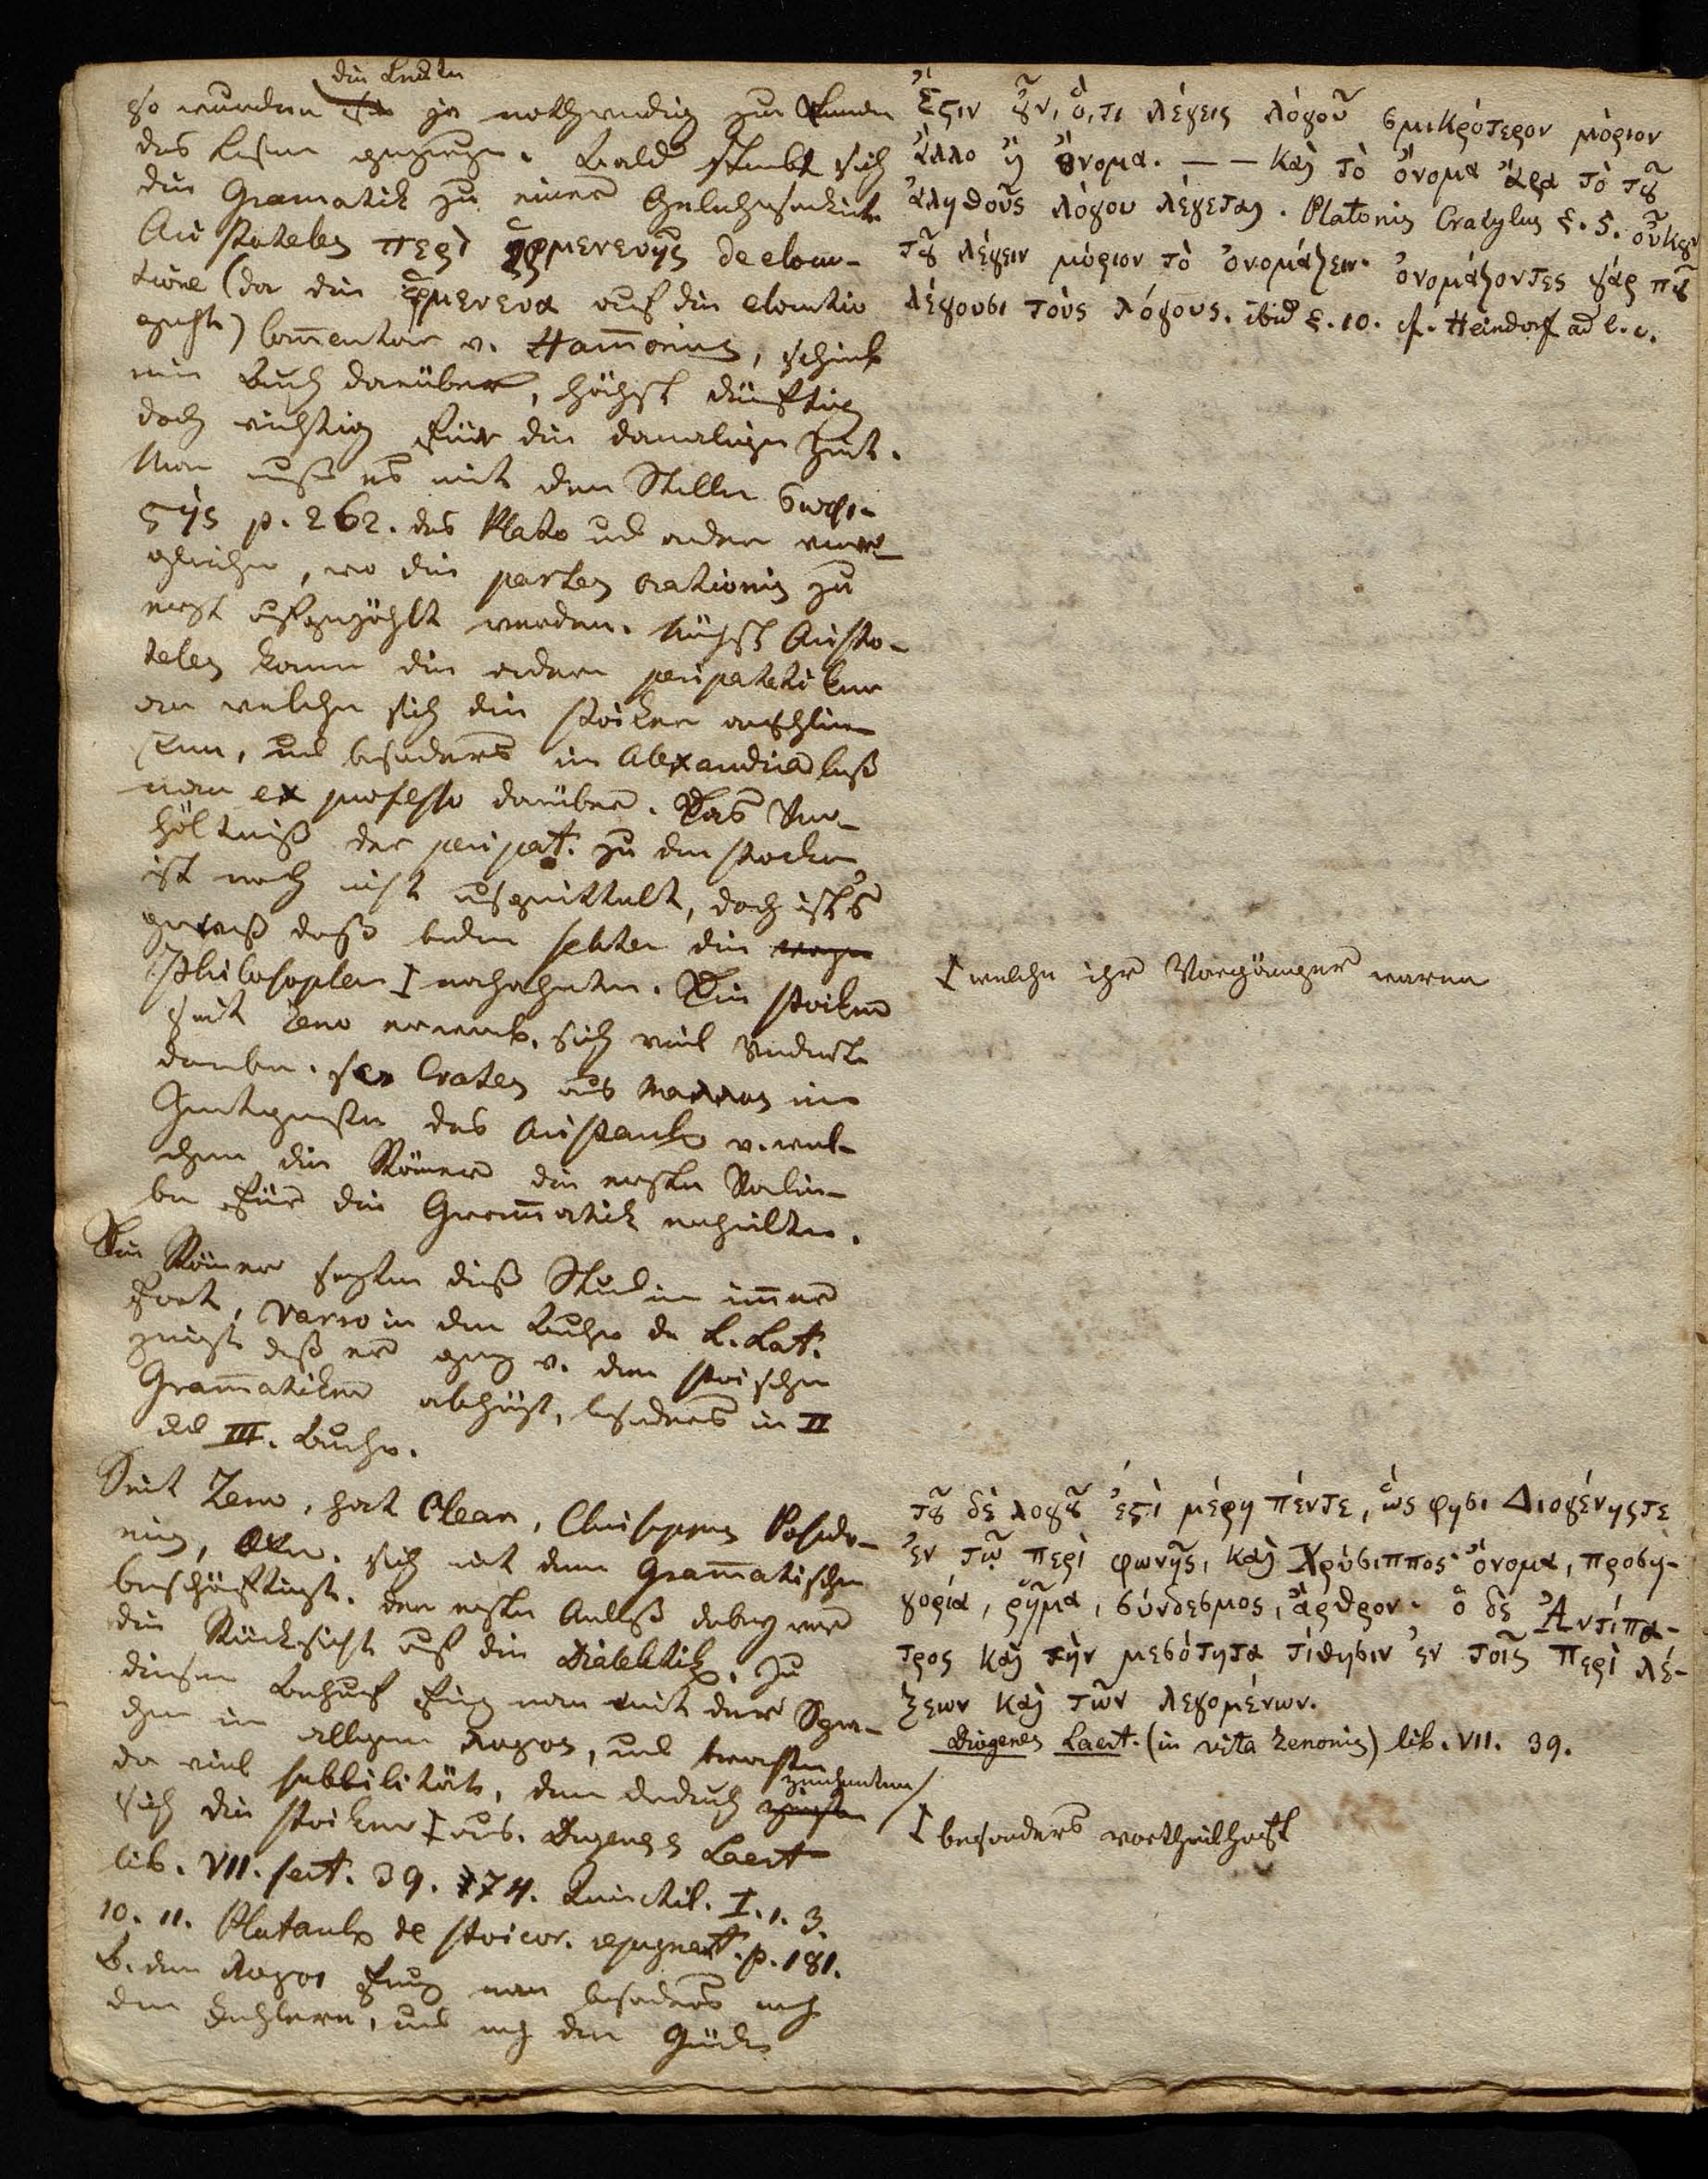 die Leute
so wurden sie ja nothwendig zur Kunde
des Lesens gezogen. Bald strebt sich
die Gramatik zu einer
Aristoteles περὶ ἑρμενενης de elocu-
tione (da die ἑρμενενα auf die elocutio
geht) Com̅entar v. Ham̅onius, schrieb
ein Buch darüber, höchst dürftig
doch wichtig für die damalige Zeit.
Man muß es mit den Stellen σωφι-
ϛης p. 262. des Plato und andern ver-
gleichen, wo die partes orationis zu
erst aufgezählt werden. Nächst Aristo-
teles komen die andern peripatetiker
an welche sich die stoiker anschlie-
ßen, und besonders in Alexandria las
man ex professo darüber. Das Ver-
hältniß der peripat. zu den stoikern
ist noch nicht ausgemittelt, doch ists
gewiß daß beide sekten die
Philosophen nachahmten. Die stoiker
seit Zeno erwarb. sich viel Verdienste
darüber. Crates aus Mallos ein
Zeitgenosse des Aristarch v. wel-
chem die Römer die ersten Vorlie-
be für die Gram̅atik erhielten.
Die Römer sezten dieß Studium im̅er
fort, Varro in den Büchern de L. Lat.
zeigt daß er ganz v. den stoischen
Gram̅atikern abhängt, besonders in II
und III. Buche.
Seit Zeno, hat Clean, Chrisippus Posido-
nius, sich mit dem Gram̅atischen
beschäftigt. Der erste Anlaß dabey war
die Rücksicht auf die Dialektik. Zu
diesem Behuf fing man mit der Spra-
che im allgem λογος, und brachte
da viel subtilität, denn dadurch zeichneten
sich die stoiker aus. Diogenes Laert
lib. VII. sect. 39. 74. Quinctil. I. 1. 3.
10. 11. Plutarch de stoicor. repugnant. p. 181.
B. dem λογος fing man besonders nach
den Fehlern, und nach der Güte
Ἔϛιν ȣ̃ν, ὅ,τι λέγεις λόγοῦ σμικρότερον μόριον
ἄλλο ἢ ὄνομα. — — Καὶ τὸ ὄνομα ἄρα τὸ τȣ̃
ἀληθοῦς λόγου λέγεται. Platonis Cratylus ξ. 5. οὐκȣ̃ν
τȣ̃ λέγειν μόριον τὸ ὀνομάζειν. ὀνομάζοντες γάρ πȣ
λέγουσι τοὺς λόγους. ibid ξ. 10. cf. Heindorf ad l. c.
welche ihr Vorgänger waren
τȣ̃ δὲ λογȣ̃ ἐϛὶ μέρη πέντε, ὥς φησι Διογένηςτε
ἐν τῷ περὶ φωνῆς, καὶ Χρύσιππος· ὄνομα, προση-
γορία, ῥῆμα, σύνδεσμος, ἄρθρον· ὁ δὲ Ἀντίπα-
τρος καὶ τὴν μεσότητα τίθησιν ἐν τοῖς περὶ λέ-
ξεων καὶ τῶν λεγομένων.
Diogenes Laert. (in vita Zenonis) lib. VII. 39.
besonders vortheilhaft